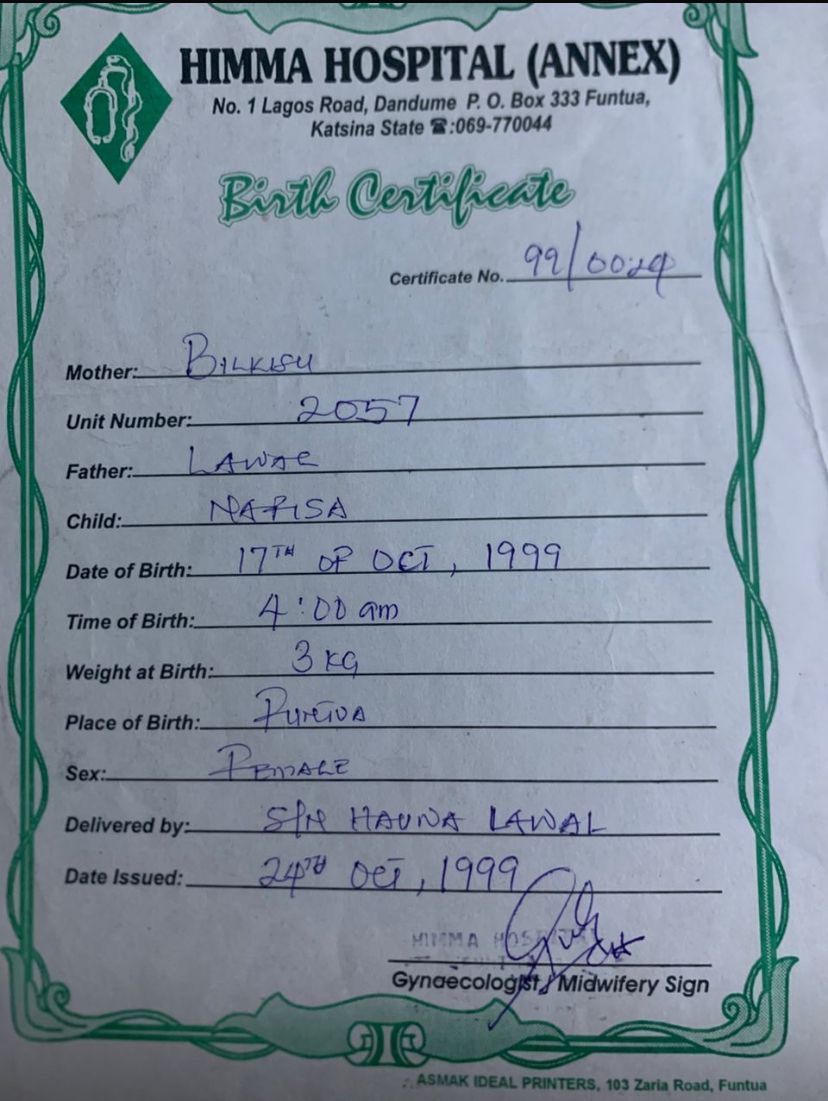 HIMMA HOSPITAL (ANNEX)
No. 1 Lagos Road, Dandume P. O. Box 333 Funtua,
Katsina State ☎:069-770044
Birth Certificate
Certificate No. 99/0024
Mother: BILKISU
Unit Number: 2057
Father: LAWAL
Child: NAFISA
Date of Birth: 17TH OF OCT, 1999
Time of Birth: 4:00 am
Weight at Birth: 3 KG
Place of Birth: FUNTUA
Sex: FEMALE
Delivered by: S/N HAUWA LAWAL
Date Issued: 24TH OCT, 1999
HIMMA HOSPITAL
Gynaecologist / Midwifery Sign
ASMAK IDEAL PRINTERS, 103 Zaria Road, Funtua